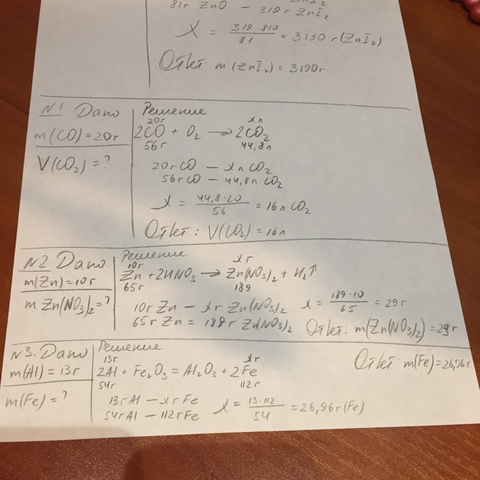 81г ZnO — 319г ZnI₂
x = 319·810 / 81 = 3190 г (ZnI₂)
Ответ m(ZnI₂) = 3190 г
N1 Дано
m(CO) = 20г
V(CO₂) = ?
Решение
20г xл
2CO + O₂ → 2CO₂
56г 44,8л
20г CO — xл CO₂
56г CO — 44,8л CO₂
x = 44,8·20 / 56 = 16л CO₂
Ответ: V(CO₂) = 16л
N2 Дано
m(Zn) = 10г
m Zn(NO₃)₂ = ?
Решение
10г xг
Zn + 2HNO₃ → Zn(NO₃)₂ + H₂↑
65г 189
10г Zn — xг Zn(NO₃)₂ x = 189·10 / 65 = 29г
65г Zn = 189г Zn(NO₃)₂ Ответ: m(Zn(NO₃)₂) = 29г
N3. Дано
m(Al) = 13г
m(Fe) = ?
Решение
13г xг
2Al + Fe₂O₃ = Al₂O₃ + 2Fe
54г 112г
13г Al — xг Fe x = 13·112 / 54 = 26,96г (Fe)
54г Al — 112г Fe
Ответ: m(Fe) = 26,96г